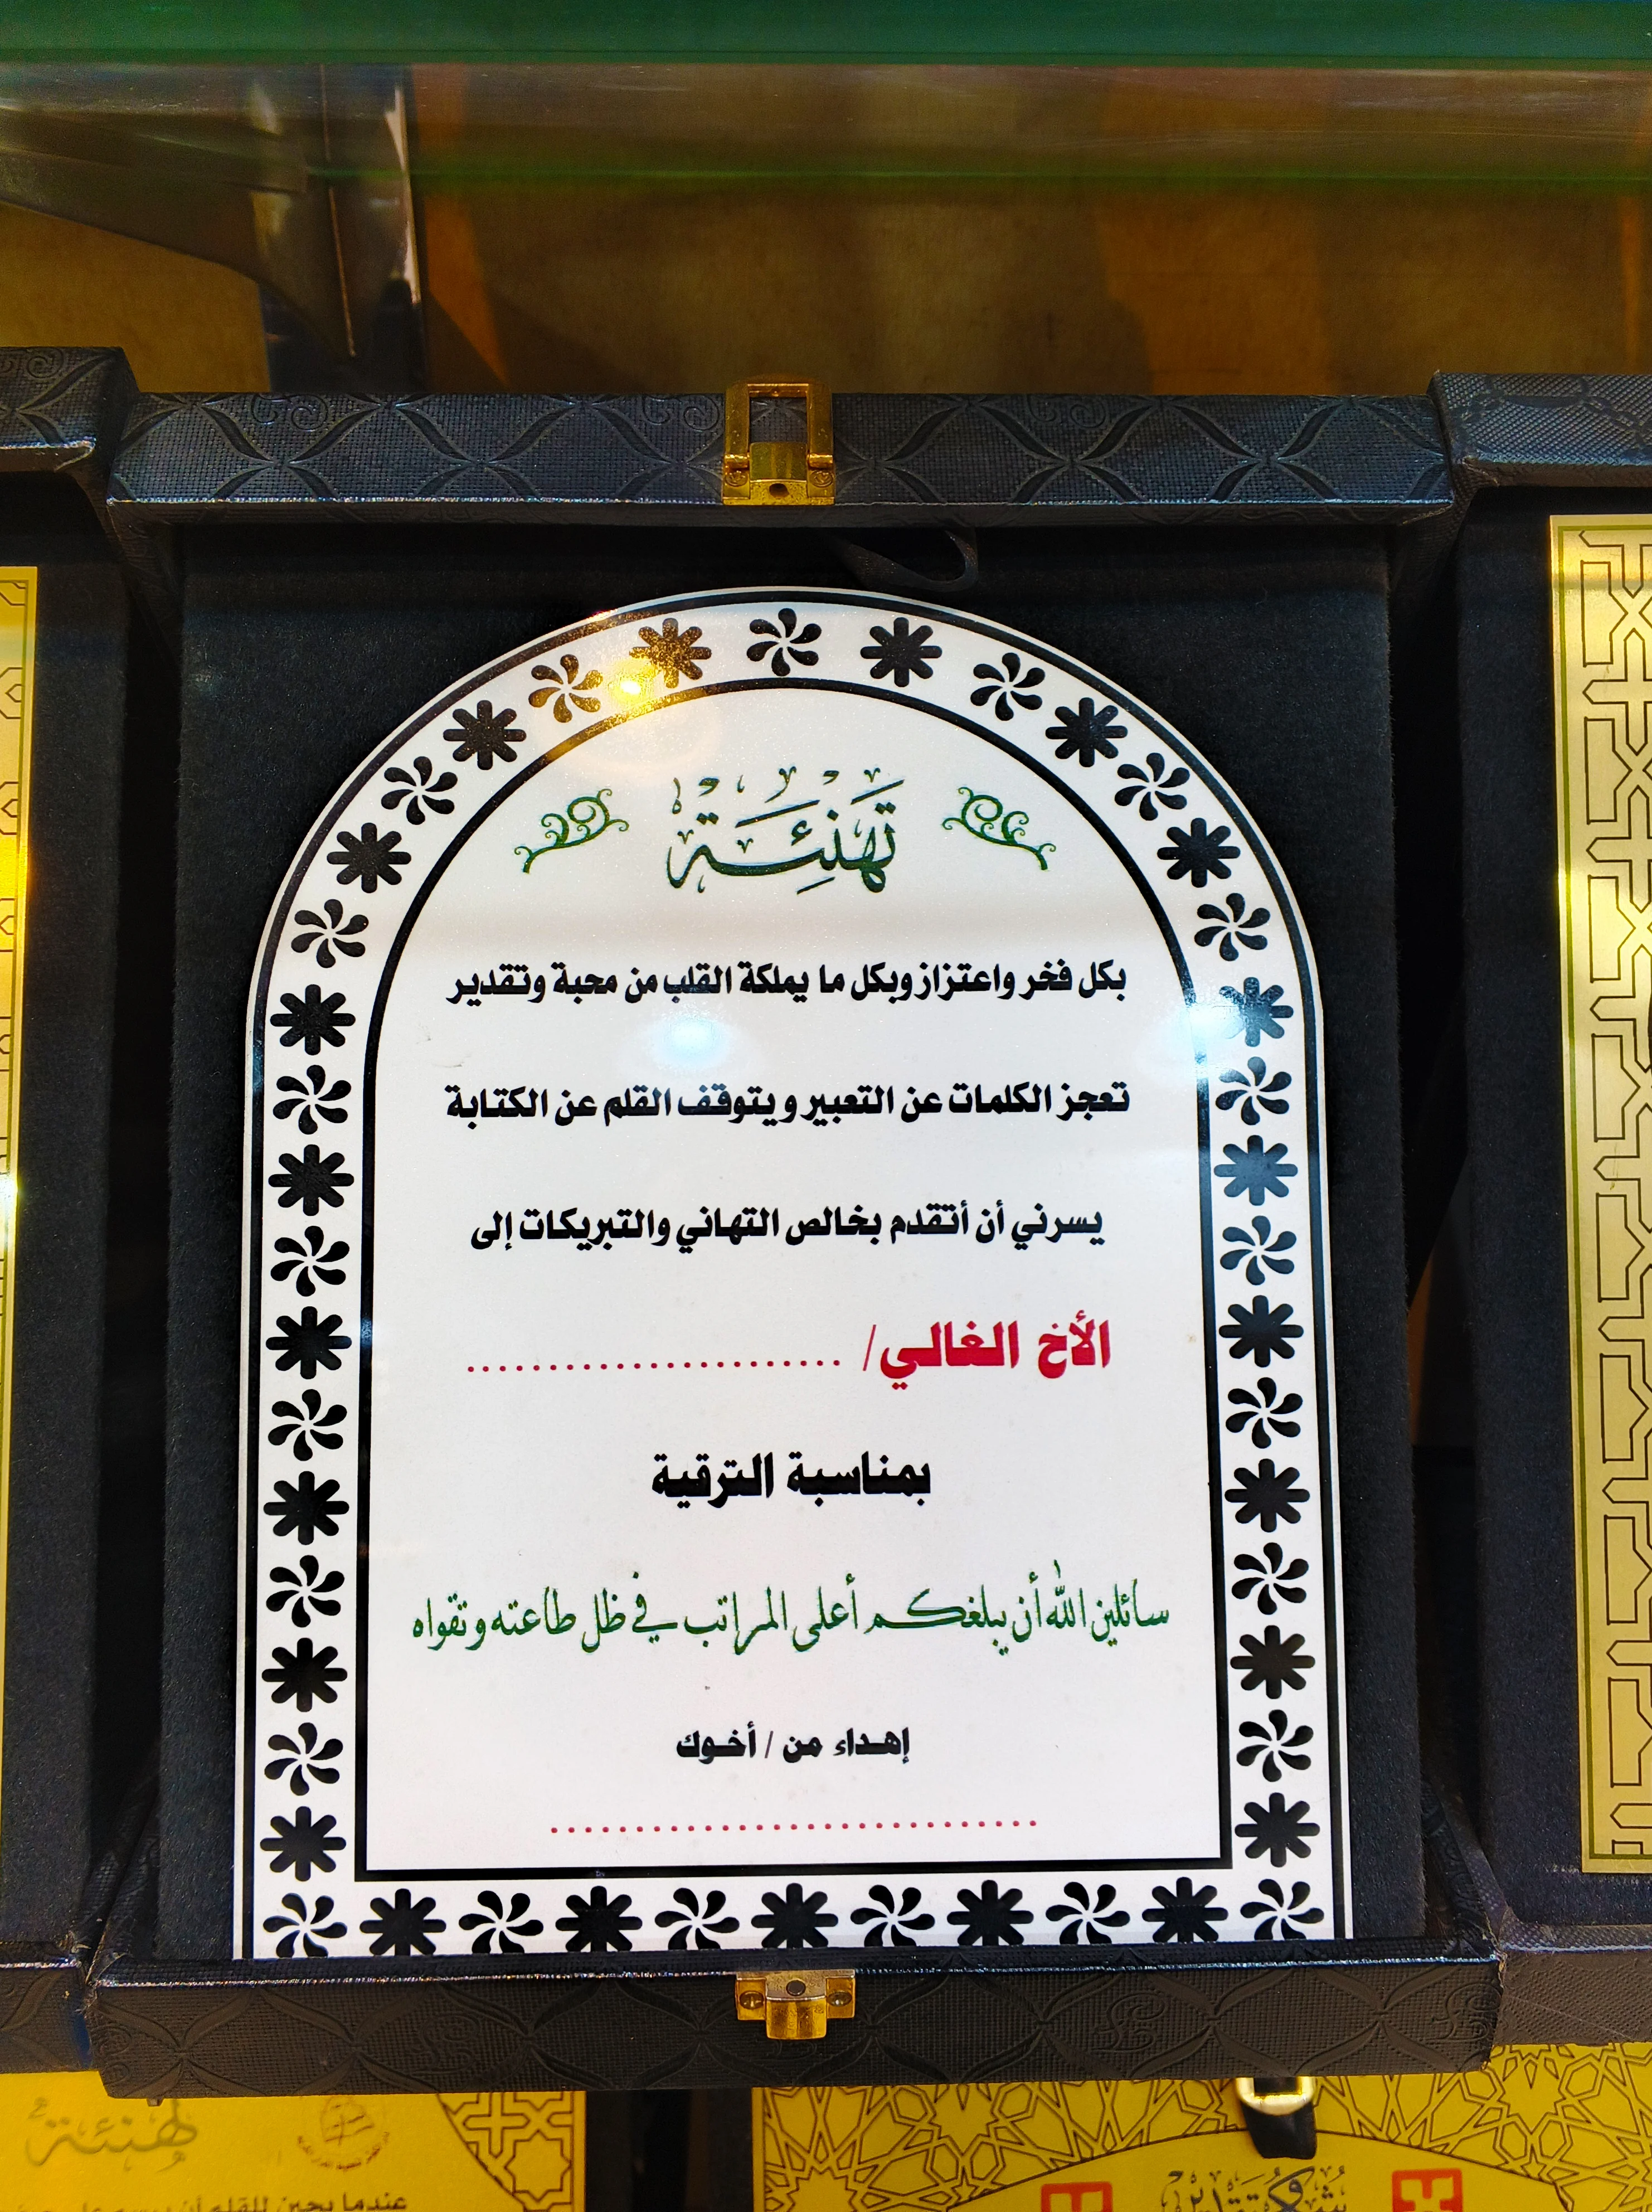 تَهْنِئَة
بكل فخر واعتزاز وبكل ما يملكة القلب من محبة وتقدير
تعجز الكلمات عن التعبير و يتوقف القلم عن الكتابة
يسرني أن أتقدم بخالص التهاني والتبريكات إلى
الأخ الغالي/ ........................
بمناسبة الترقية
سائلين الله أن يبلغكم أعلى المراتب في ظل طاعته و تقواه
إهداء من / أخوك
..............................
تهنئة